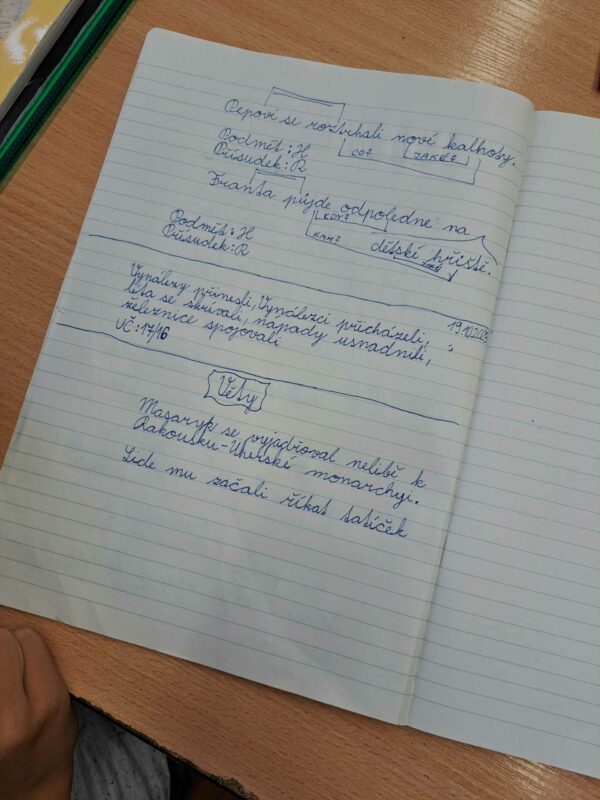 Pepovi se roztrhali nové kalhoty.
Podmět: H
Přísudek: R
CO? JAKÉ?
Franta půjde odpoledne na
KDY?
KAM? dětské hřiště.
Podmět: H
Přísudek: R
Vynálezy přinesli, Vynálezci přicházeli, 19.10.2023
léta se skrývali, nápady usnadnili,
železnice spojovali
UČ: 17/6
Věty
Masaryk se vyjadřoval nelibě k
Rakousku-Uherské monarchyi.
Lide mu začali říkat tatíček